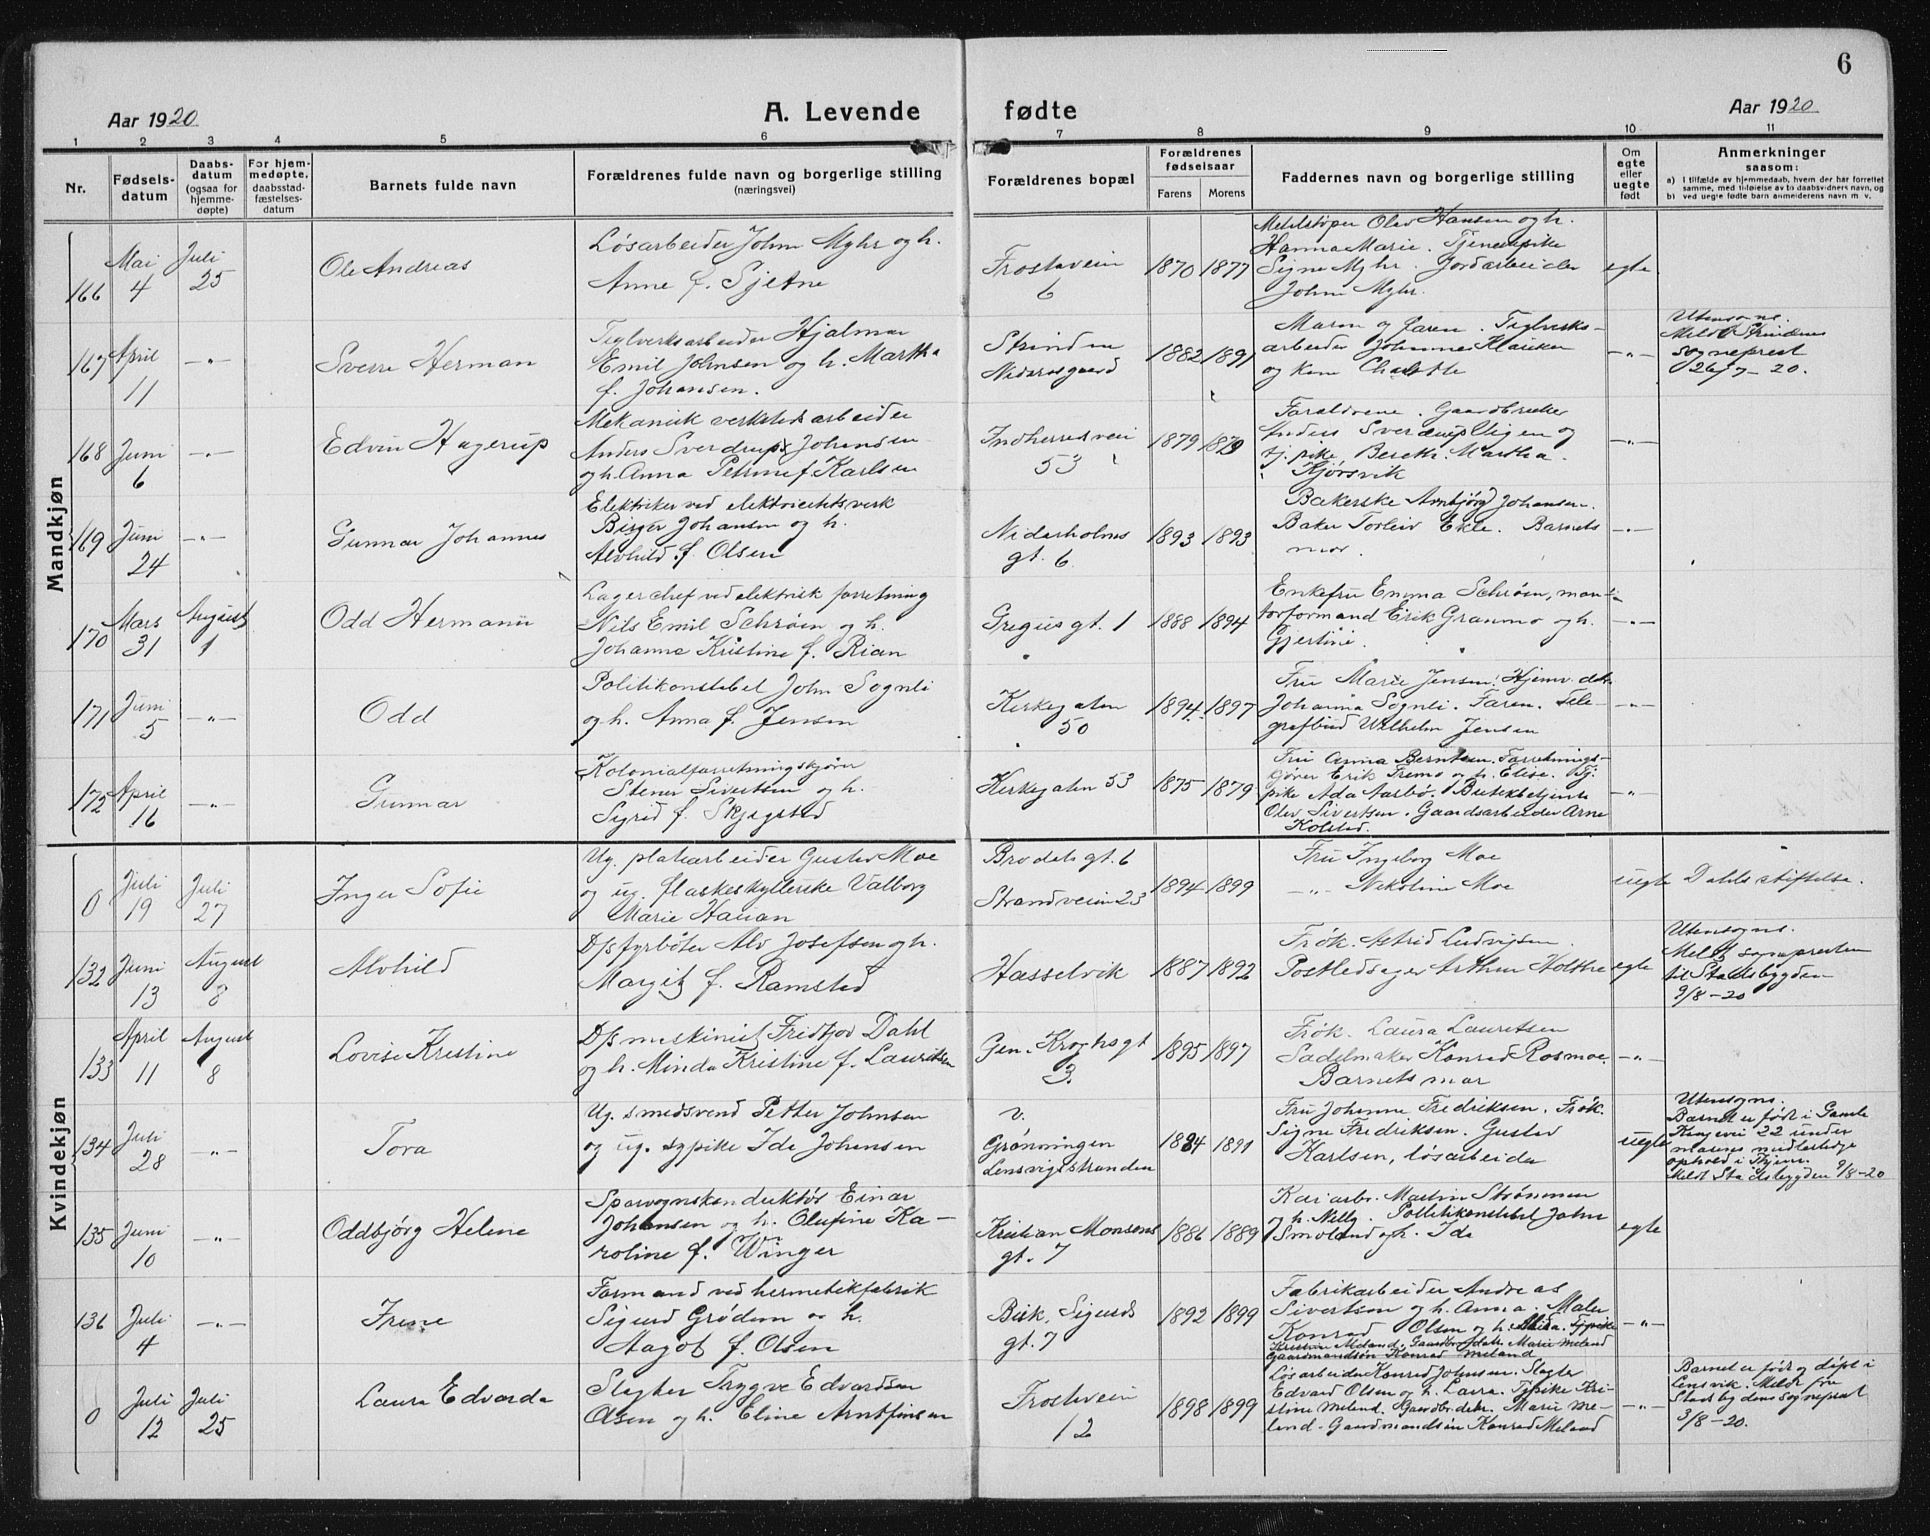 6
Aar 1920
A. Levende
fødte
Aar 1920
1 2 3 4 5 6 7 8 9 10 11
Nr.
Fødsels-
datum
Daabs-
datum
(ogsaa for
hjemme-
døpte)
For hjem-
medøpte,
daabsstad-
fæstelses-
datum
Barnets fulde navn
Forældrenes fulde navn og borgerlige stilling
(næringsvei)
Forældrenes bopæl
Forældrenes
fødselsaar
Farens
Morens
Faddernes navn og borgerlige stilling
Om
egte
eller
uegte
født
Anmerkninger
saasom:
a) i tilfælde av hjemmedaab, hvem der har forrettet
samme, med tilføielse av to daabsvidners navn, og
b) ved uegte fødte barn anmelderens navn m. v.
Mandkjøn
166
Mai
4
Juli
25
Ole Andreas
Løsarbeider John Myhr og h.
Anne f. Sjetne
Frostaveien
6
1870 1877
Olav Hansen og h.
Hanna Marie. Tjenerpike
Signe Myhr. Jordarbeider
John Myhr.
egte
167
April
11
-"-
Sverre Herman
Teglverksarbeider Hjalmar
Emil Johnsen og h. Martha
f. Johansen.
Strinden
Nidarosgaard
1882 1891
Moren og faren. Teglverks-
arbeider Johannes Hauken
og kone Charlotte
-"-
Utensogns.
Meldt Strindens
sogneprest
26/7-20.
168
Juni
6
-"-
Edvin Hagerup
Mekanisk verkstedsarbeider
Anders Sverdrup Johansen
og h. Anna Petrine f. Karlsen
Indherredsvei
53
1879 1879
Forældrene. Gaardbruker
Anders Sverdrup Vigen og
tj. pike Bereth Martha
Kjørsvik
-"-
169
Juni
24
-"-
Gunnar Johannes
Elektriker ved elektricitetsverk
Birger Johansen og h.
Alvhild f. Olsen
Nidarholms
gt. 6
1893 1893
Bakerske Arnbjørg Johansen.
Baker Torleiv Ekle. Barnets
mor.
-"-
170
Mars
31
August
1
Odd Hermann
Lagerchef ved elektrisk forretning
Nils Emil Schrøen og h.
Johanna Kristine f. Rian
Gregus gt. 1
1888 1894
Enkefru Emma Schrøen, mon-
törformand Erik Granmo og h.
Gjertine.
-"-
171
Juni
5
-"-
Odd
Politikonstabel John Sognli
og h. Anna f. Jensen
Kirkegaten
50
1894 1897
Fru Marie Jensen. Hjemv. dtr.
Johanna Sognli. Faren. Tele-
grafbud Wilhelm Jensen
-"-
172
April
16
-"-
Gunnar
Kolonialforretningskjører
Stener Sivertsen og h.
Sigrid f. Skjegstad
Kirkegaten 53
1875 1879
Fru Anna Berntsen. Forretnings-
kjører Erik Tremo og h. Elise. Tj.
pike Ada Aarbø. Butikbetjent
Olav Sivertsen. Gaardsarbeider Arne
Kolstad.
-"-
Kvindekjøn
0
Juli
19
Juli
27
Inger Sofie
Ug. platearbeider Gustav Moe
og ug. flaskeskyllerske Valborg
Marie Hauan
gt. 6
Strandveien 23
1894 1899
Fru Ingeborg Moe
-"- Nikoline Moe
uegte
Dahls stiftelse.
132
Juni
13
August
8
Alvhild
D/s fyrbøter Alv Josefsen og h.
Margit f. Ramstad
Hasselvik
1887 1892
Frøk. Astrid Ludvigsen.
Postledsager Arthur Holthe
egte
Utensogns.
Meldt sognepresten
til Stadsbygden
9/8-20
133
April
11
August
8
Lovise Kristine
D/s maskinist Fridtjov Dahl
og h. Minda Kristine f. Lauritsen
Gen. Kroghs gt
3.
1895 1897
Frøk. Laura Lauritsen
Sadelmaker Konrad Rosmoe.
Barnets mor
-"-
134
Juli
28
-"-
Tora
Ug. smedsvend Petter Johnsen
og ug. sypike Ida Johansen
v.
Grønningen
Lensvigstranden
1884 1891
Fru Johanne Fredriksen. Frøk.
Signe Fredriksen. Gustav
Karlsen, løsarbeider
uegte
Utensogns.
Barnet er født i Gamle
Kongevei 22 under
morens midlertidige
ophold i Thjem.
Meldt Stadsbygden 9/8-20
135
Juni
10
-"-
Oddbjörg Helene
Sporvognskonduktør Einar
Johansen og h. Olufine Ka-
roline f. Winger
Kristian Monsens
gt. 7
1886 1889
Kaiarbr. Martin Strømmen
og h. Nelly. Politikonstabel John
Smoland og h. Ida
egte
136
Juli
4
-"-
Irene
Formand ved hermetikfabrik
Sigurd Grødem og h.
Aagot f. Olsen
Bisk. Sigurds
gt. 7
1892 1899
Fabrikarbeider Andreas
Sivertsen og h. Anna. Maler
Konrad Olsen og h. Tjpike
Kristine Meland. Gaardbr.datr. Marie Meland
Gaardmandsøn Konrad Meland
-"-
0
Juli
12
Juli
25
Laura Edvarda
Slagter Trygve Edvardsen
Olsen og h. Eline Arntfinsen
Frostaveien
12
1898 1899
Løsarbeider Konrad Johnsen. Slagter
Edvard Olsen og h. Laura. Tjpike Kri-
stine Meland. Gaardbr.datr. Marie Me-
land. Gaardmandsøn Konrad Meland
-"-
Barnet er født og døpt i
Lensvik. Meldt fra
Stadsbygdens sogneprest
3/8-20.